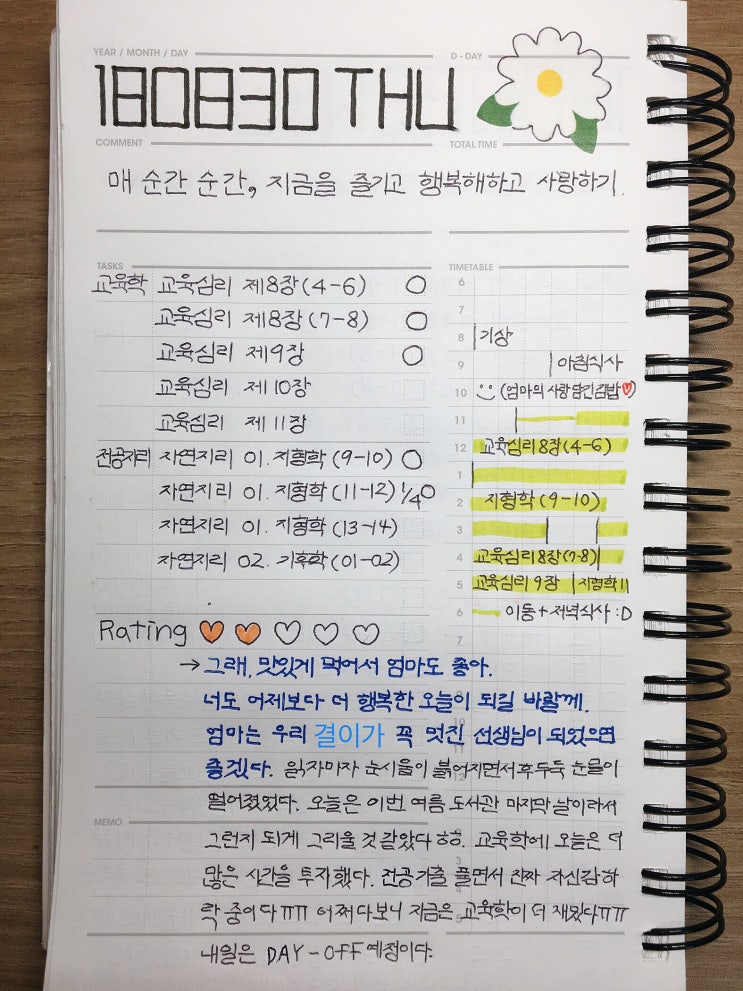 YEAR / MONTH / DAY
D - DAY
180830 THU
COMMENT
TOTAL TIME
매 순간 순간, 지금을 즐기고 행복해하고 사랑하기.
TASKS
교육학 교육심리 제8장 (4-6) O
교육심리 제8장 (7-8) O
교육심리 제9장 O
교육심리 제10장
교육심리 제11장
전공지리 자연지리 01. 지형학 (9-10) O
자연지리 01. 지형학 (11-12) 1/4 O
자연지리 01. 지형학 (13-14)
자연지리 02. 기후학 (01-02)
TIMETABLE
6
7
8 기상
9 아침식사
10 (엄마의 사랑 담긴 김밥♥)
11
12 교육심리 8장 (4-6)
1
2 지형학 (9-10)
3
4 교육심리 8장 (7-8)
5 교육심리 9장 지형학 11
6 이동 + 저녁식사 :D
7
Rating ♥ ♥ ♡ ♡ ♡
→ 그래, 맛있게 먹어서 엄마도 좋아.
너도 어제보다 더 행복한 오늘이 되길 바랄께.
엄마는 우리 결이가 꼭 멋진 선생님이 되었으면
좋겠다. 읽자마자 눈시울이 붉어지면서 후두둑 눈물이
떨어졌었다. 오늘은 이번 여름 도서관 마지막 날이라서
MEMO
그런지 되게 그리울 것 같았다 ㅎㅎ. 교육학에 오늘은 더
많은 시간을 투자했다. 전공기출 풀면서 진짜 자신감 하
락 중이다ㅠㅠ 어쩌다보니 지금은 교육학이 더 재밌다ㅠㅠ
내일은 DAY-OFF 예정이다.